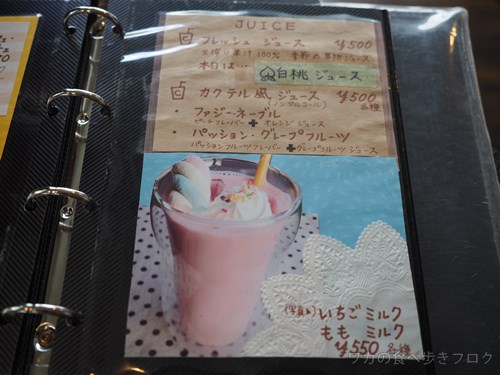 JUICE
フレッシュ ジュース ¥500
生搾り果汁100% 季節の果物ジュース
本日は… 白桃 ジュース
カクテル風 ジュース ¥500
(ノンアルコール) 各種
・ファジーネーブル
ピーチフレーバー + オレンジ ジュース
・パッション・グレープフルーツ
パッションフルーツフレーバー + グレープフルーツ ジュース
(写真は)いちごミルク
もも ミルク
¥550 各種
ワカの食べ歩きブログ